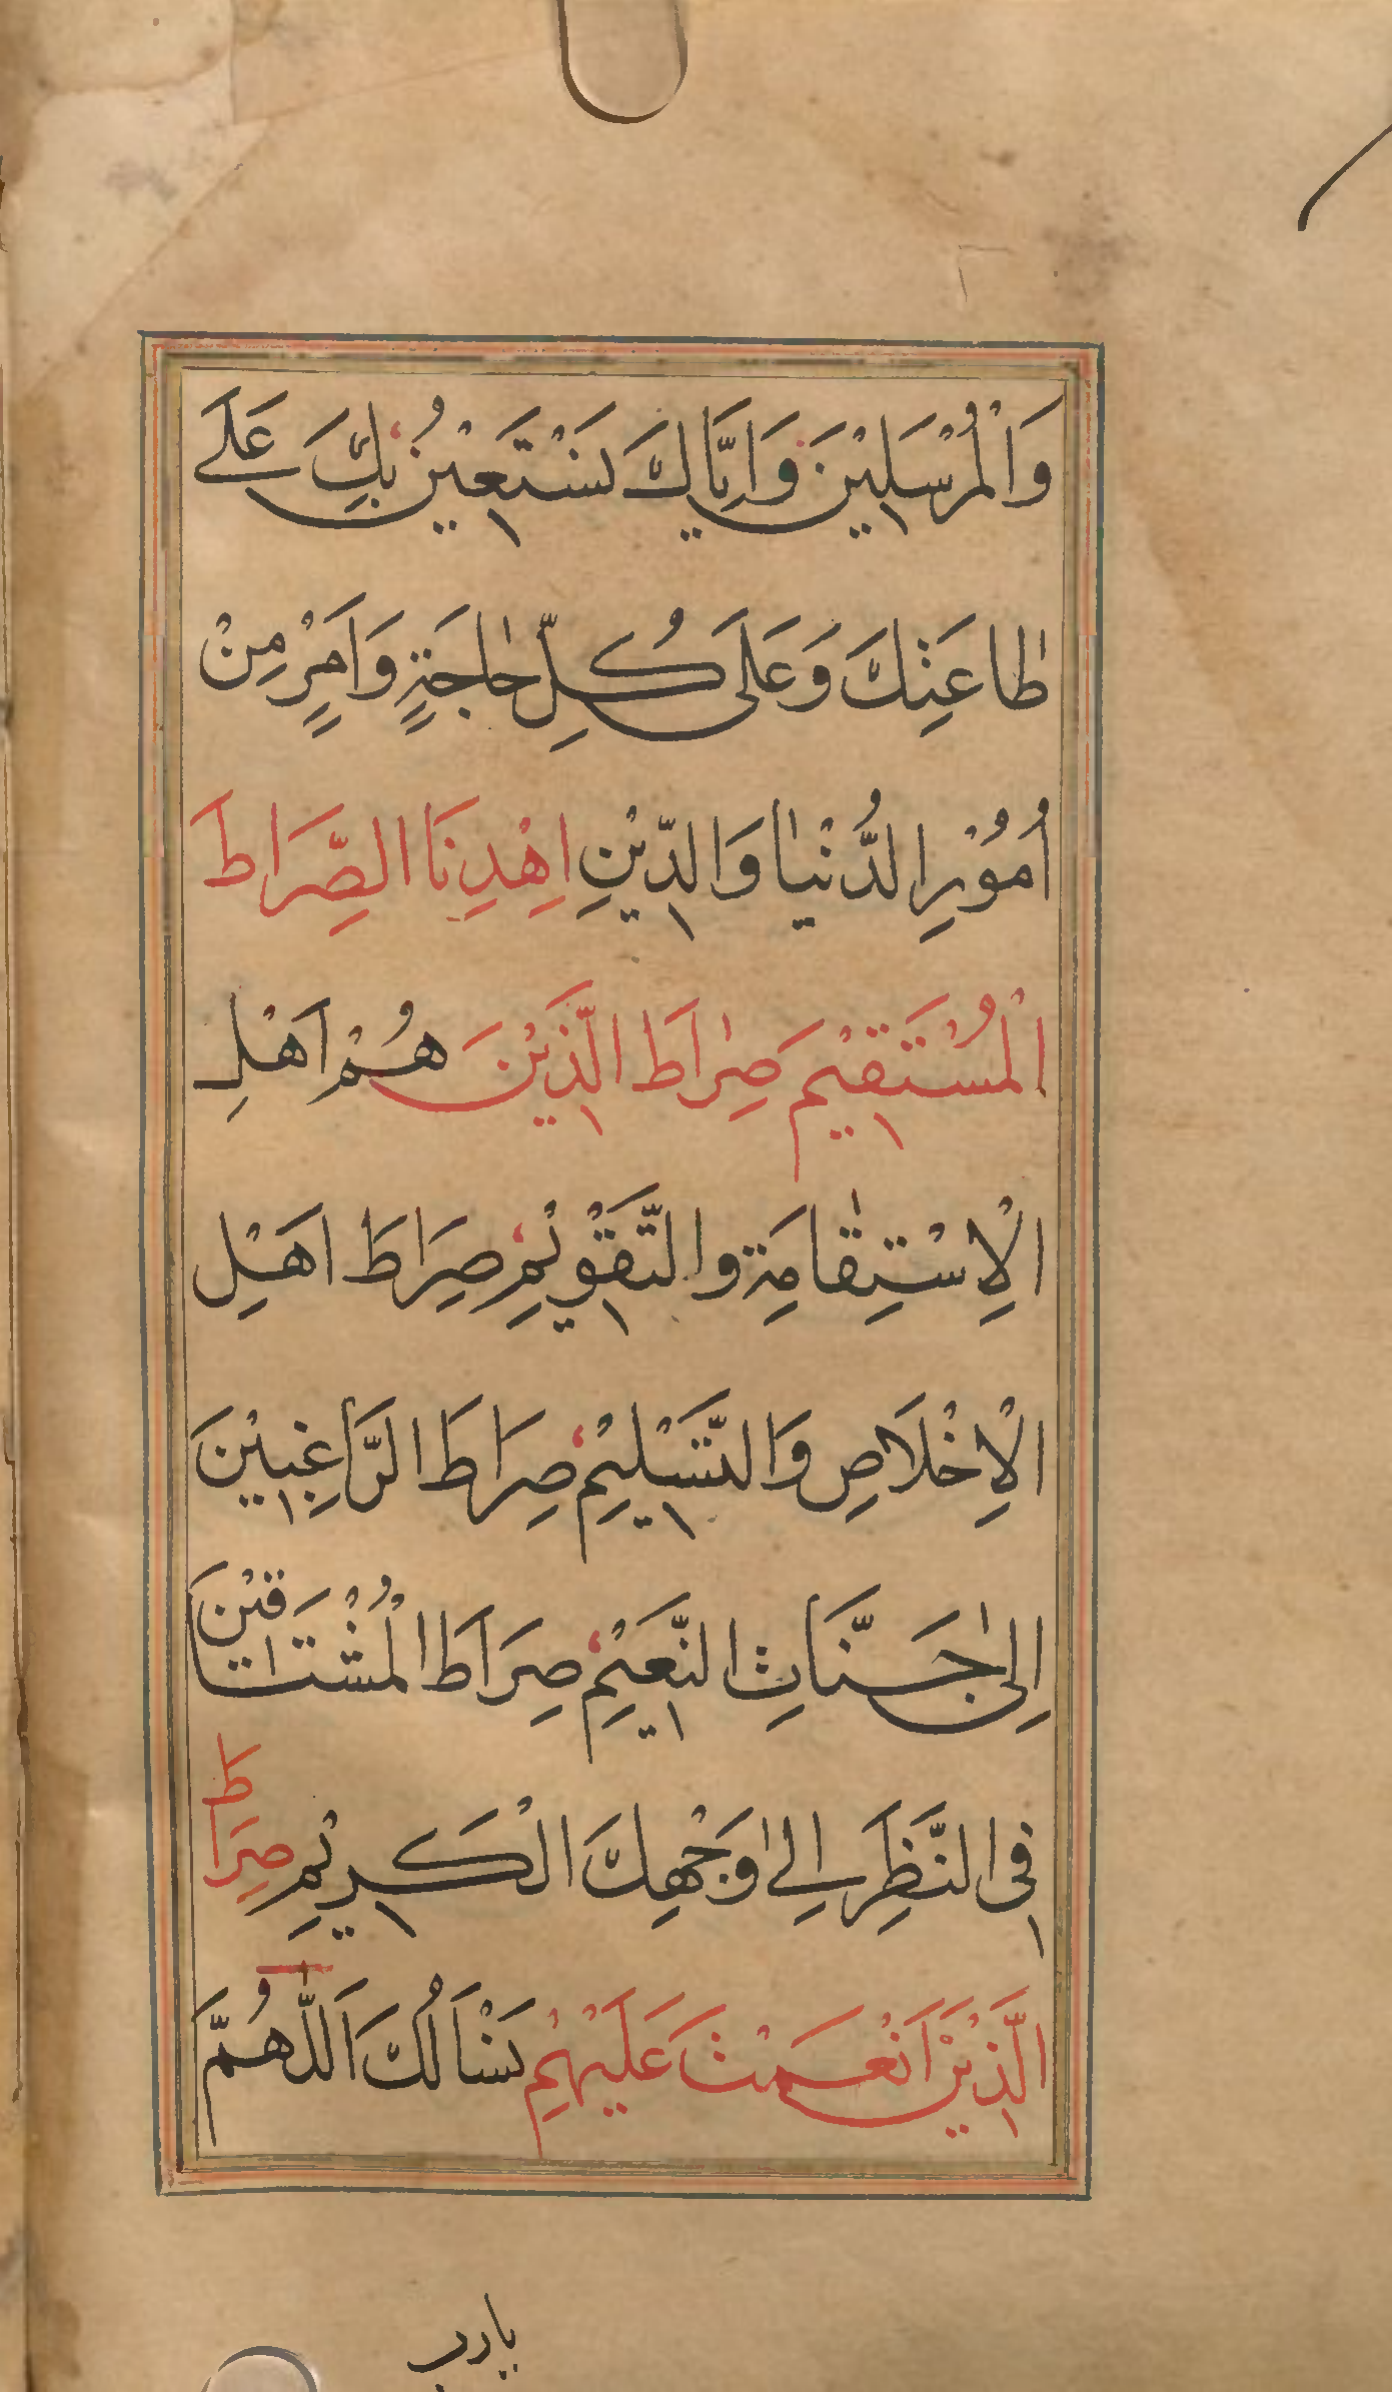 وَالْمُرْسَلِيْنَ وَاِيَّاكَ نَسْتَعِيْنُ بِكَ عَلَى
طَاعَتِكَ وَعَلَى كُلِّ حَاجَةٍ وَاَمْرٍ مِنْ
اُمُوْرِ الدُّنْيَا وَالدِّيْنِ اِهْدِنَا الصِّرَاطَ
الْمُسْتَقِيْمَ صِرَاطَ الَّذِيْنَ هُمْ اَهْلِ
الْاِسْتِقَامَةِ والتَّقْوِيْمِ صِرَاطَ اَهْلِ
الْاِخْلَاصِ وَالتَّسْلِيْمِ صِرَاطَ الرَّاغِبِيْنَ
اِلٰى جَنَّاتِ النَّعِيْمِ صِرَاطَ الْمُشْتَاقِيْنَ
فِى النَّظَرِ اِلٰى وَجْهِكَ الْكَرِيْمِ صِرَاطَ
الَّذِيْنَ اَنْعَمْتَ عَلَيْهِمْ نَسْاَلُكَ اَللّٰهُمَّ
يارب